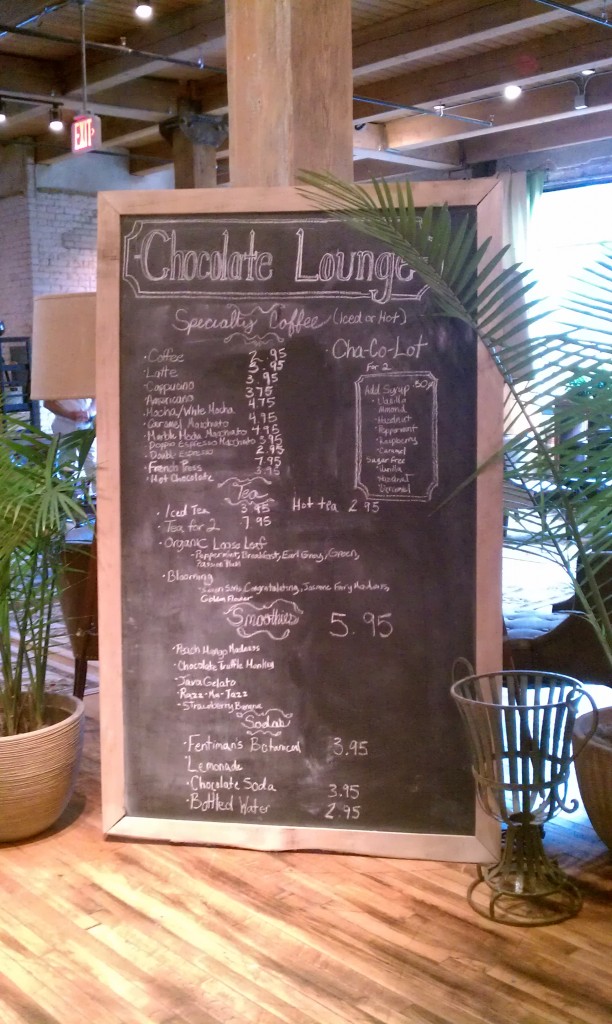 EXIT
Chocolate Lounge
Specialty Coffee (Iced or Hot)
Coffee 2.95
Latte 3.95
Cappucino 3.95
Americano 3.75
Mocha/White Mocha 4.75
Caramel Macchiato 4.95
Marble Mocha Macchiato 4.95
Doppio Espresso Macchiato 3.95
Double Espresso 2.95
French Press 7.95
Hot Chocolate 3.95
Cha-Co-Lot
For 2
Add Syrup .50
Vanilla
Almond
Hazelnut
Peppermint
Raspberry
Caramel
Sugar Free
Vanilla
Hazelnut
Caramel
Tea
Iced Tea 3.95 Hot tea 2.95
Tea for 2 7.95
Organic Loose Leaf
Peppermint, Breakfast, Earl Grey, Green,
Blooming
Jasmine Fairy Maidens,
Golden Flower
Smoothies 5.95
Peach Mango Madness
Chocolate Truffle Monkey
Java Gelato
Razz-Ma-Tazz
Strawberry Banana
Sodas
Fentiman's Botanical 3.95
Lemonade
Chocolate Soda 3.95
Bottled Water 2.95